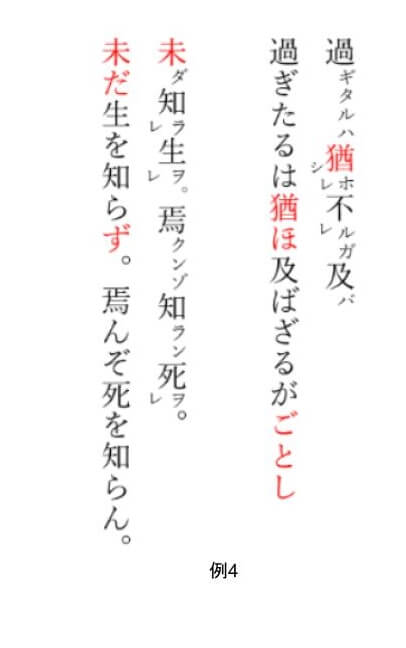 過ギタルハ猶ホシレ不ルガレ及バ
過ぎたるは猶ほ及ばざるがごとし
未ダ知ラレ生ヲレ。焉クンゾ知ラン死ヲレ。
未だ生を知らず。焉んぞ死を知らん。
例4